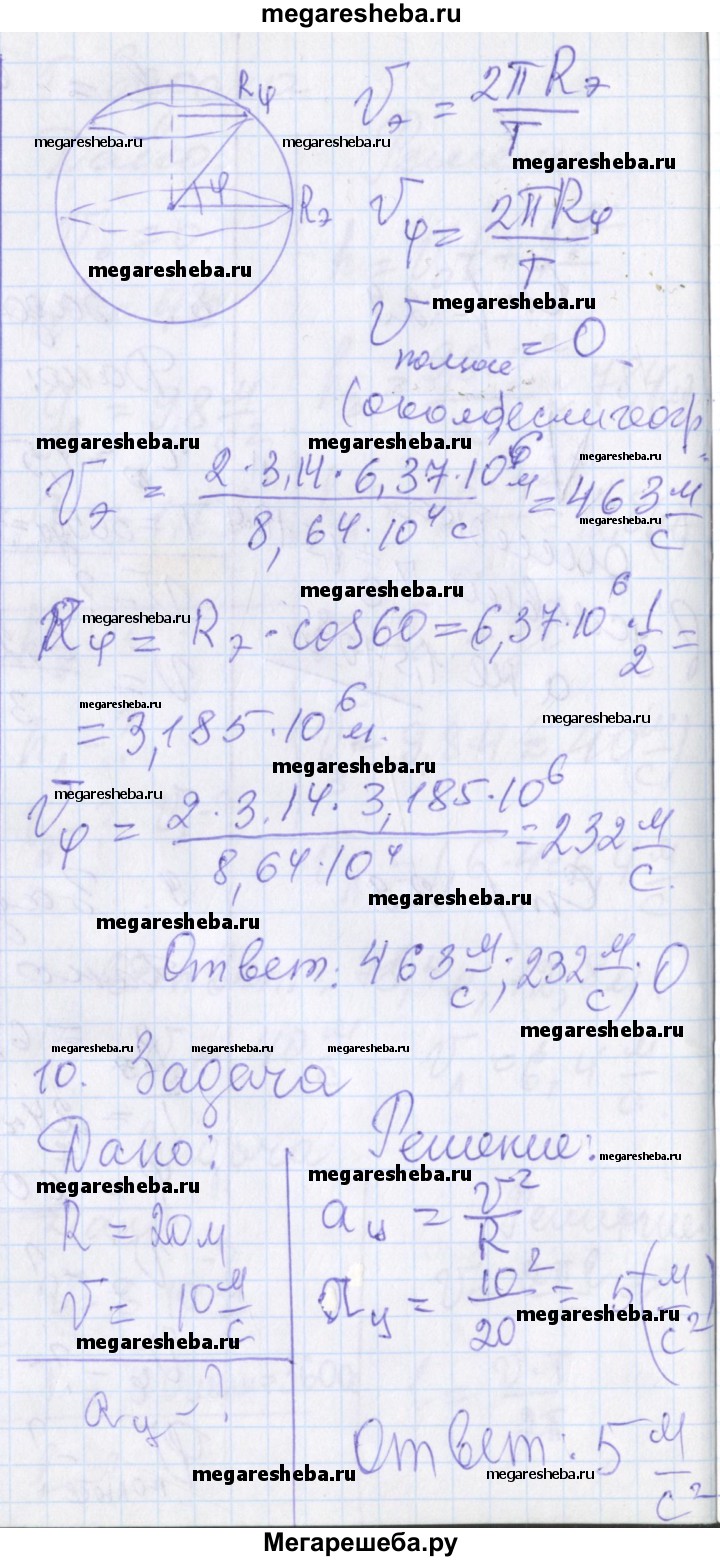 megaresheba.ru
Rφ
Vэ = 2πRэ / T
megaresheba.ru megaresheba.ru megaresheba.ru
φ Rэ
Vφ = 2πRφ / T
megaresheba.ru
megaresheba.ru
Vполюсе = 0
megaresheba.ru megaresheba.ru
megaresheba.ru
Vэ = 2·3,14·6,37·10⁶ м / 8,64·10⁴ с = 463 м/с
megaresheba.ru
megaresheba.ru
megaresheba.ru
Rφ = Rэ · cos60 = 6,37·10⁶ · 1/2 =
megaresheba.ru
megaresheba.ru
= 3,185·10⁶ м.
megaresheba.ru
megaresheba.ru
Vφ = 2·3,14·3,185·10⁶ / 8,64·10⁴ = 232 м/с.
megaresheba.ru
megaresheba.ru
Ответ: 463 м/с; 232 м/с; 0
megaresheba.ru
megaresheba.ru megaresheba.ru megaresheba.ru
10. Задача
Дано: Решение:
megaresheba.ru
megaresheba.ru megaresheba.ru
R = 20 м
aц = V² / R
V = 10 м/с
aц = 10² / 20 = 5 (м/с²)
megaresheba.ru
megaresheba.ru
aц - ?
Ответ: 5 м/с²
megaresheba.ru megaresheba.ru
Мегарешеба.ру